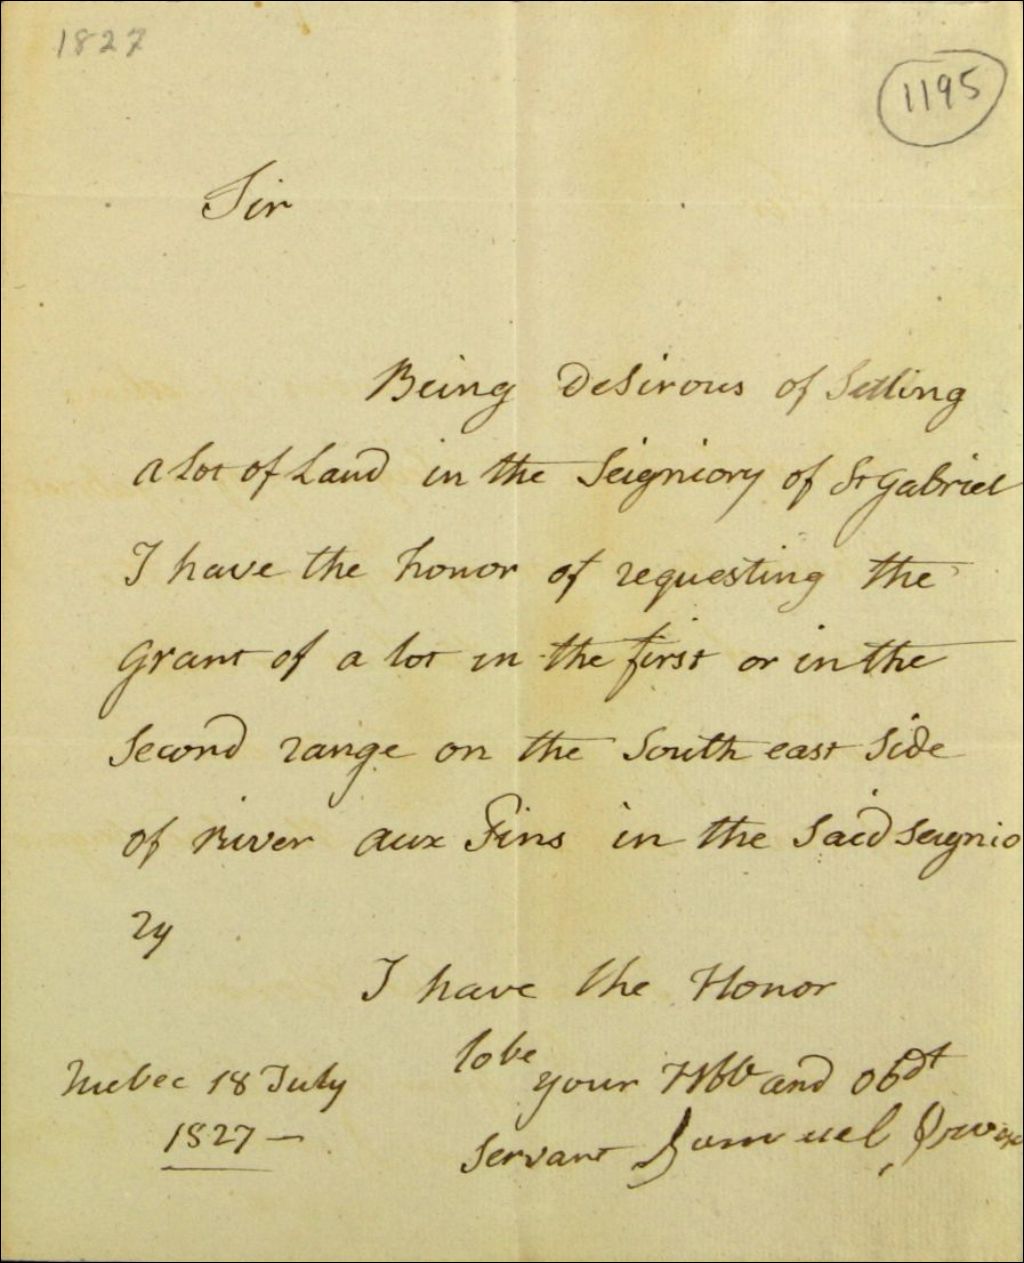 1827
1195
Sir
Being Desirous of Setling
a Lot of Land in the Seigniory of St Gabriel
I have the honor of requesting the
Grant of a lot in the first or in the
Second range on the South east Side
of River aux Pins in the Said Seignio
ry
I have the Honor
to be
your Hble and obdt
Servant Samuel
Quebec 18 July
1827 —